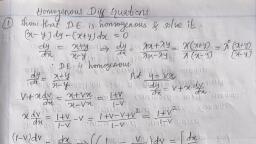 Homogenous Diff Equations
① Show that DE is homogenous & solve it
(x-y)dy-(x+y)dx = 0
dy/dx = x+y/x-y ⇒ dy/dx = xx+xy/xx-xy = x(x+y)/x(x-y) = x⁰(x+y)/(x-y)
∴ DE is homogenous
dy/dx = x+y/x-y Put y = vx
dy/dx = v+x dv/dx
v+x dv/dx = x+vx/x-vx = 1+v/1-v
x dv/dx = 1+v/1-v -v = 1+v-v+v²/1-v = 1+v²/1-v
(1-v)dv = dx